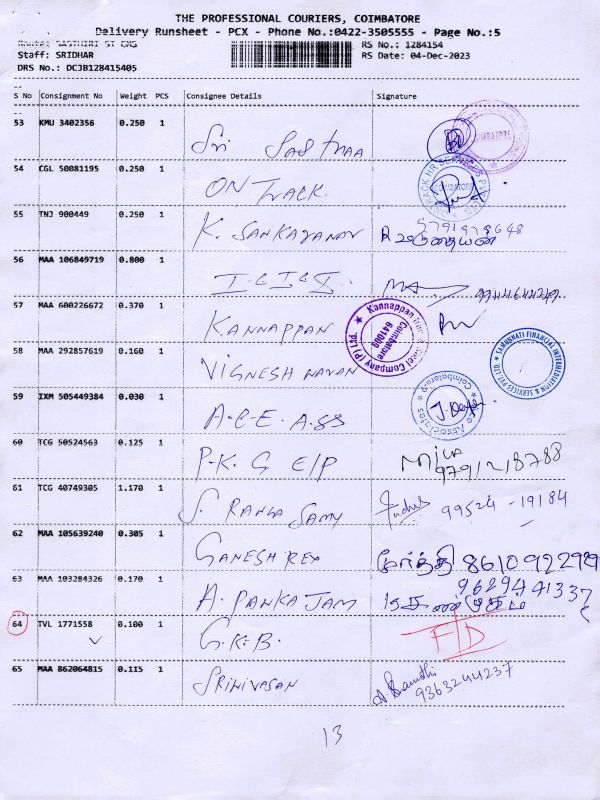 THE PROFESSIONAL COURIERS, COIMBATORE
Delivery Runsheet - PCX - Phone No.:0422-3505555 - Page No.:5
RS No.: 1284154
Staff: SRIDHAR RS Date: 04-Dec-2023
DRS No.: DCJB128415405
S No Consignment No Weight PCS Consignee Details Signature
53 KMU 3402356 0.250 1 Sri
54 CGL 50081195 0.250 1 ON TRACK COIMBATORE
55 TNJ 900449 0.250 1 K. SANKARANAR 9791978648
56 MAA 106849719 0.800 1 I C I C I 9944644247
57 MAA 600226672 0.370 1 KANNAPPAN Kannappan Coimbatore 641009
58 MAA 292857619 0.160 1 VIGNESH NAYAN SAMUNNATI FINANCIAL INTERMEDIATION & SERVICES PVT LTD
59 IXM 505449384 0.030 1 A.C.E. ASS Associates
60 TCG 50524563 0.125 1 P.K.G E/P 9791218788
61 TCG 40749305 1.170 1 S. RANGA SAMY 99524 -19184
62 MAA 105639240 0.305 1 GANESH REX 8610922929
63 MAA 103284326 0.170 1 A. PANKAJAM 9629441337
64 TVL 1771558 0.100 1 G.K.B. F/D
65 MAA 862064815 0.115 1 SRINIVASAN 9363244237
13